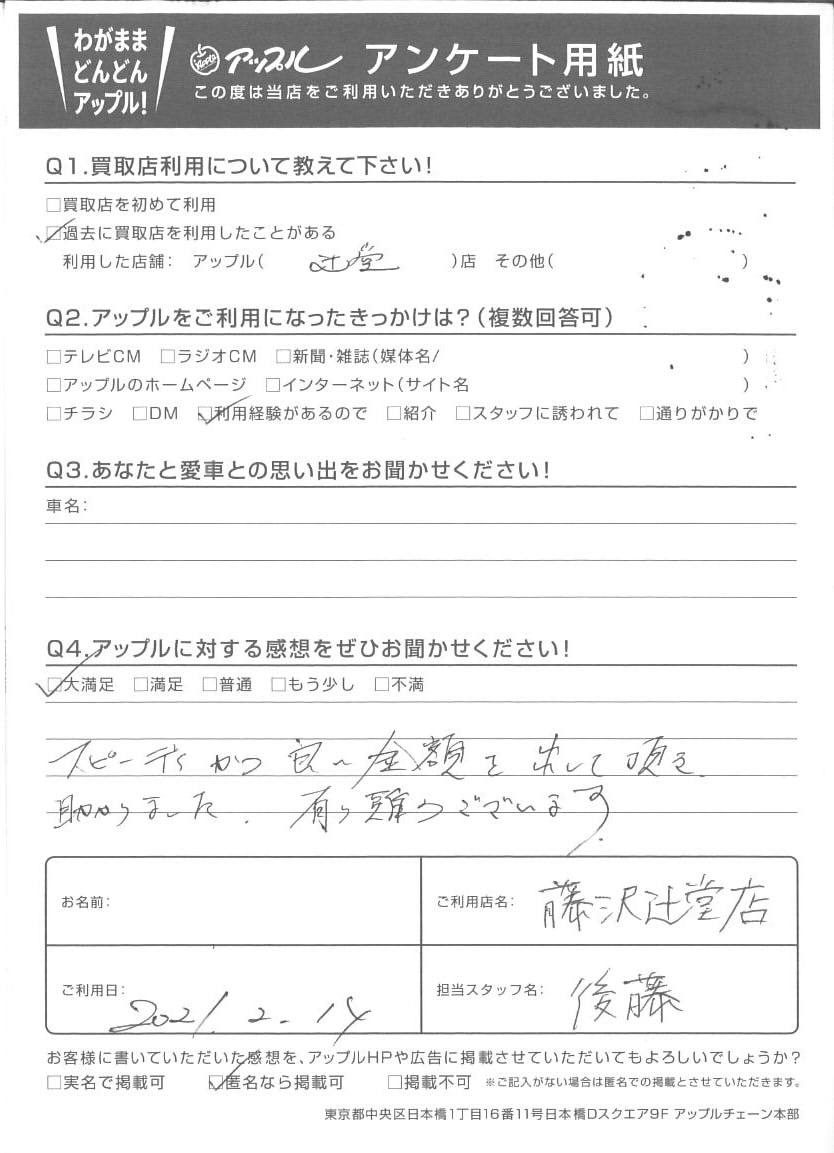 わがまま
どんどん
アップル!
アップル アンケート用紙
この度は当店をご利用いただきありがとうございました。
Q1.買取店利用について教えて下さい!
□買取店を初めて利用
☑過去に買取店を利用したことがある
利用した店舗: アップル( 辻堂 )店 その他( )
Q2.アップルをご利用になったきっかけは?(複数回答可)
□テレビCM □ラジオCM □新聞・雑誌(媒体名/ )
□アップルのホームページ □インターネット(サイト名 )
□チラシ □DM ☑利用経験があるので □紹介 □スタッフに誘われて □通りがかりで
Q3.あなたと愛車との思い出をお聞かせください!
車名:
Q4.アップルに対する感想をぜひお聞かせください!
☑大満足 □満足 □普通 □もう少し □不満
スピーディかつ良い金額を出して頂き
助かりました. 有り難うございます.
お名前:
ご利用店名: 藤沢辻堂店
ご利用日: 2021. 2. 14
担当スタッフ名: 後藤
お客様に書いていただいた感想を、アップルHPや広告に掲載させていただいてもよろしいでしょうか?
□実名で掲載可 ☑匿名なら掲載可 □掲載不可 ※ご記入がない場合は匿名での掲載とさせていただきます。
東京都中央区日本橋1丁目16番11号日本橋Dスクエア9F アップルチェーン本部